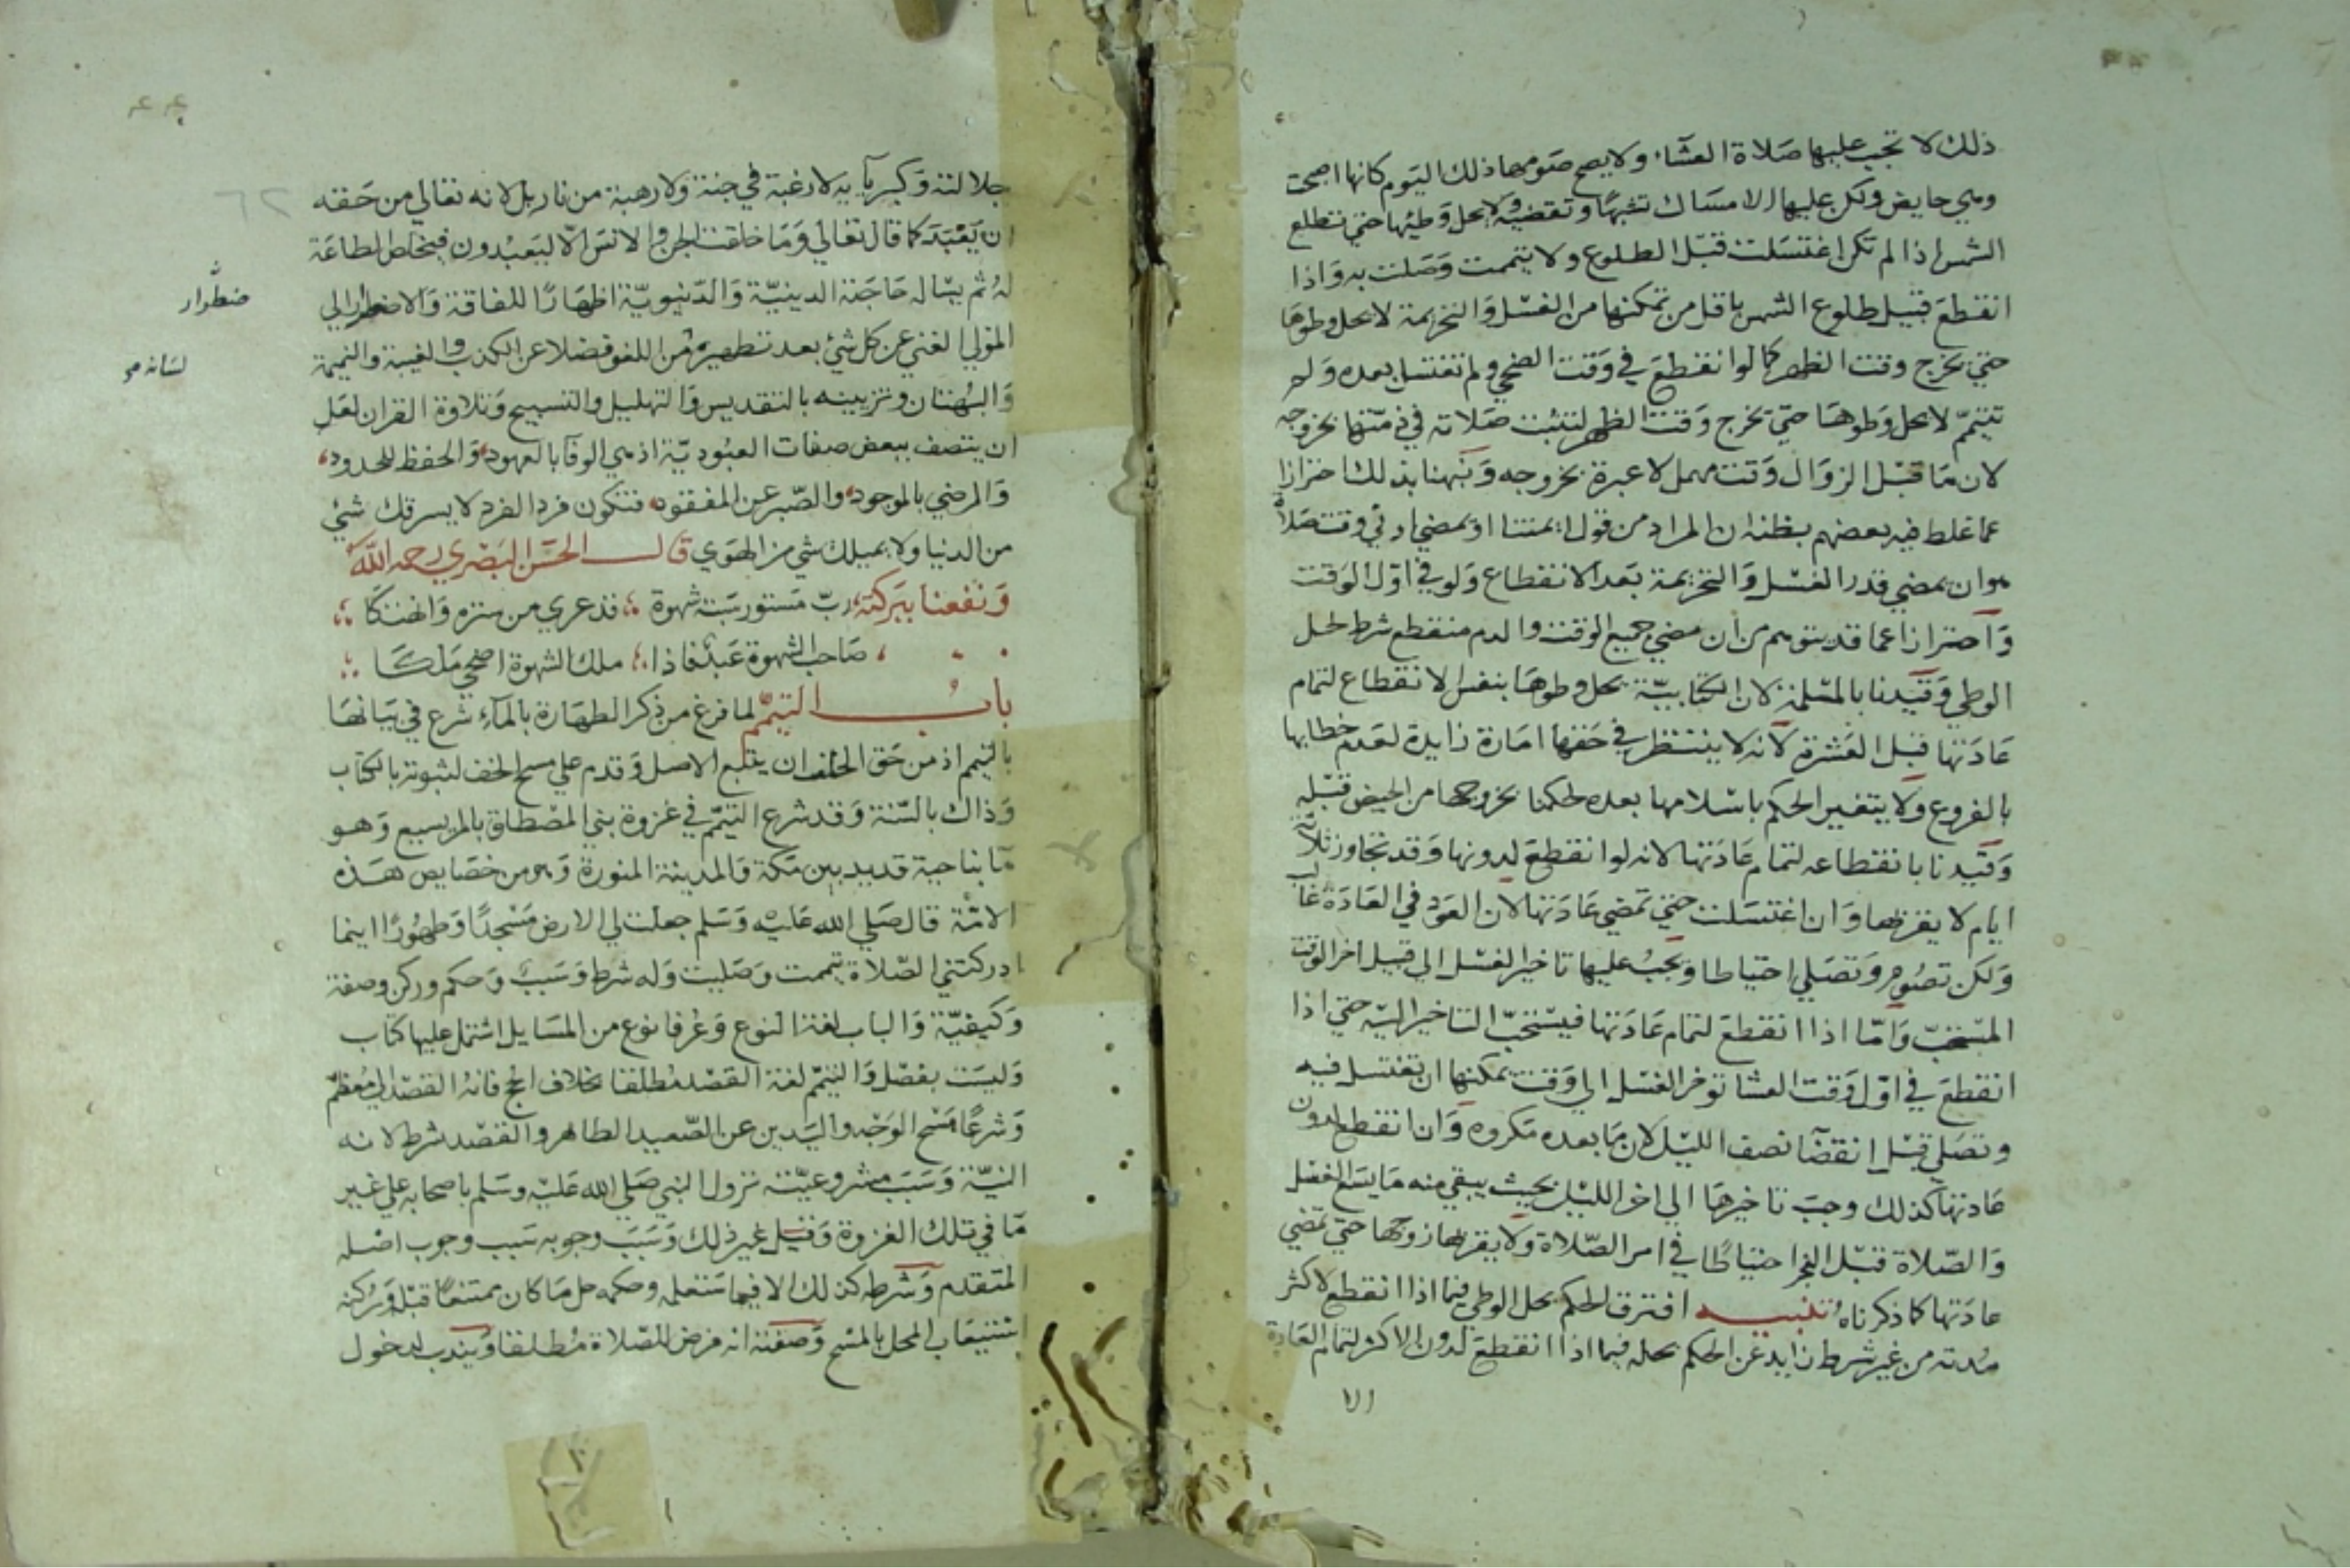 ذلك لا تجب عليها صلاة العشاء ولا يصح صومها ذلك اليوم كانها اصبحت
وهي حايض ولكن عليها الامساك تشبها وتقضيه ولا يحل وطيها حتي تطلع
الشمس اذا لم تكن اغتسلت قبل الطلوع ولا تيممت وصلت به واذا
انقطع قبيل طلوع الشمس باقل من تمكنها من الغسل والتحريمة لا يحل وطوها
حتي يخرج وقت الظهر كما لو انقطع في وقت الضحي ولم تغتسل بعده ولم
تتيمم لا يحل وطوها حتي يخرج وقت الظهر لتثبت صلاته في ذمتها بخروجه
لان ما قبل الزوال وقت مهمل لا عبرة بخروجه ونبهنا بذلك احترازا
عما غلط فيه بعضهم بظنه ان المراد من قول ايمتنا او بمضي ادني وقت صلاة
هو ان يمضي قدر الغسل والتحريمة بعد الانقطاع ولو في اول الوقت
واحترازا عما قد يتوهم من ان مضي جميع الوقت والدم منقطع شرط لحل
الوطي وقيدنا بالمسلمة لان الكتابية يحل وطوها بنفس الانقطاع لتمام
عادتها قبل العشرة لانه لا ينتظر في حقها امارة زايدة لعدم خطابها
بالفروع ولا يتغير الحكم باسلامها بعده لحكمنا بخروجها من الحيض قبله
وقيدنا بانقطاعه لتمام عادتها لانه لو انقطع لدونها وقد تجاوز ثلاثة
ايام لا يقربها وان اغتسلت حتي تمضي عادتها لان العود في العادة غالب
ولكن تصوم وتصلي احتياطا ويجب عليها تاخير الغسل الي قبيل اخر الوقت
المستحب واما اذا انقطع لتمام عادتها فيستحب التاخير اليه حتي اذا
انقطع في اول وقت العشا توخر الغسل الي وقت يمكنها ان تغتسل فيه
وتصلي قبل انقضآ نصف الليل لان ما بعده مكروه وان انقطع لدون
عادتها كذلك وجب تاخيرها الي اخر الليل بحيث يبقي منه ما يسع الغسل
والصلاة قبل الفجر احتياطا في امر الصلاة ولا يقربها زوجها حتي تمضي
عادتها كما ذكرناه تنبيه افترق الحكم بحل الوطي فيما اذا انقطع لاكثر
مدته من غير شرط زايد عن الحكم بحله فيما اذا انقطع لدون الاكثر لتمام العادة
الا
جلالته وكبريآيه لا رغبة في جنة ولا رهبة من نار بل لانه تعالي من حقه
ان يعبد كما قال تعالي وما خلقت الجن والانس الا ليعبدون فيخلص الطاعة
له ثم يساله حاجته الدينية والدنيوية اظهارا للفاقة والاضطرار الي
ضطرار
المولي الغني عن كل شئ بعد تطهيره من اللغو فضلا عن الكذب والغيبة والنميمة
لسانه صح
والبهتان وتزيينه بالتقديس والتهليل والتسبيح وتلاوة القران لعل
ان يتصف ببعض صفات العبودية اذ هي الوفآ بالعهود، والحفظ للحدود،
والرضي بالموجود، والصبر عن المفقود، فتكون فرد الفرد لا يسرقك شئ
من الدنيا ولا يميلك شي من الهوي قال الحسن البصري رحمه الله
ونفعنا ببركته، رب مستور سبته شهوة ؛ قد عري من ستره وانهتكا ؛
صاحب الشهوة عبد فاذا ؛ ملك الشهوة اضحي ملكا ؛
باب التيمم لما فرغ من ذكر الطهارة بالمآء شرع في بيانها
بالتيمم اذ من حق الخلف ان يتبع الاصل وقدم علي مسح الخف لثبوته بالكتاب
وذاك بالسنة وقد شرع التيمم في غزوة بني المصطلق بالمريسيع وهو
مآ بناحية قديد بين مكة والمدينة المنورة وهو من خصايص هذه
الامة قال صلي الله عليه وسلم جعلت لي الارض مسجدا وطهورا اينما
ادركتني الصلاة تيممت وصليت وله شرط وسبب وحكم وركن وصفة
وكيفية والباب لغة النوع وعرفا نوع من المسايل اشتمل عليها كتاب
وليست بفصل والتيمم لغة القصد مطلقا بخلاف الحج فانه القصد الي معظم
وشرعا مسح الوجه واليدين عن الصعيد الطاهر والقصد شرط لانه
النية وسبب مشروعيته نزول النبي صلي الله عليه وسلم باصحابه علي غير
مآ في تلك الغزوة وقيل غير ذلك وسبب وجوبه سبب وجوب اصله
المتقدم وشرطه كذلك الا فيما ستعلمه وحكمه حل ما كان ممتنعا قبله وركنه
استيعاب المحل بالمسح وصفته انه فرض للصلاة مطلقا ويندب لدخول